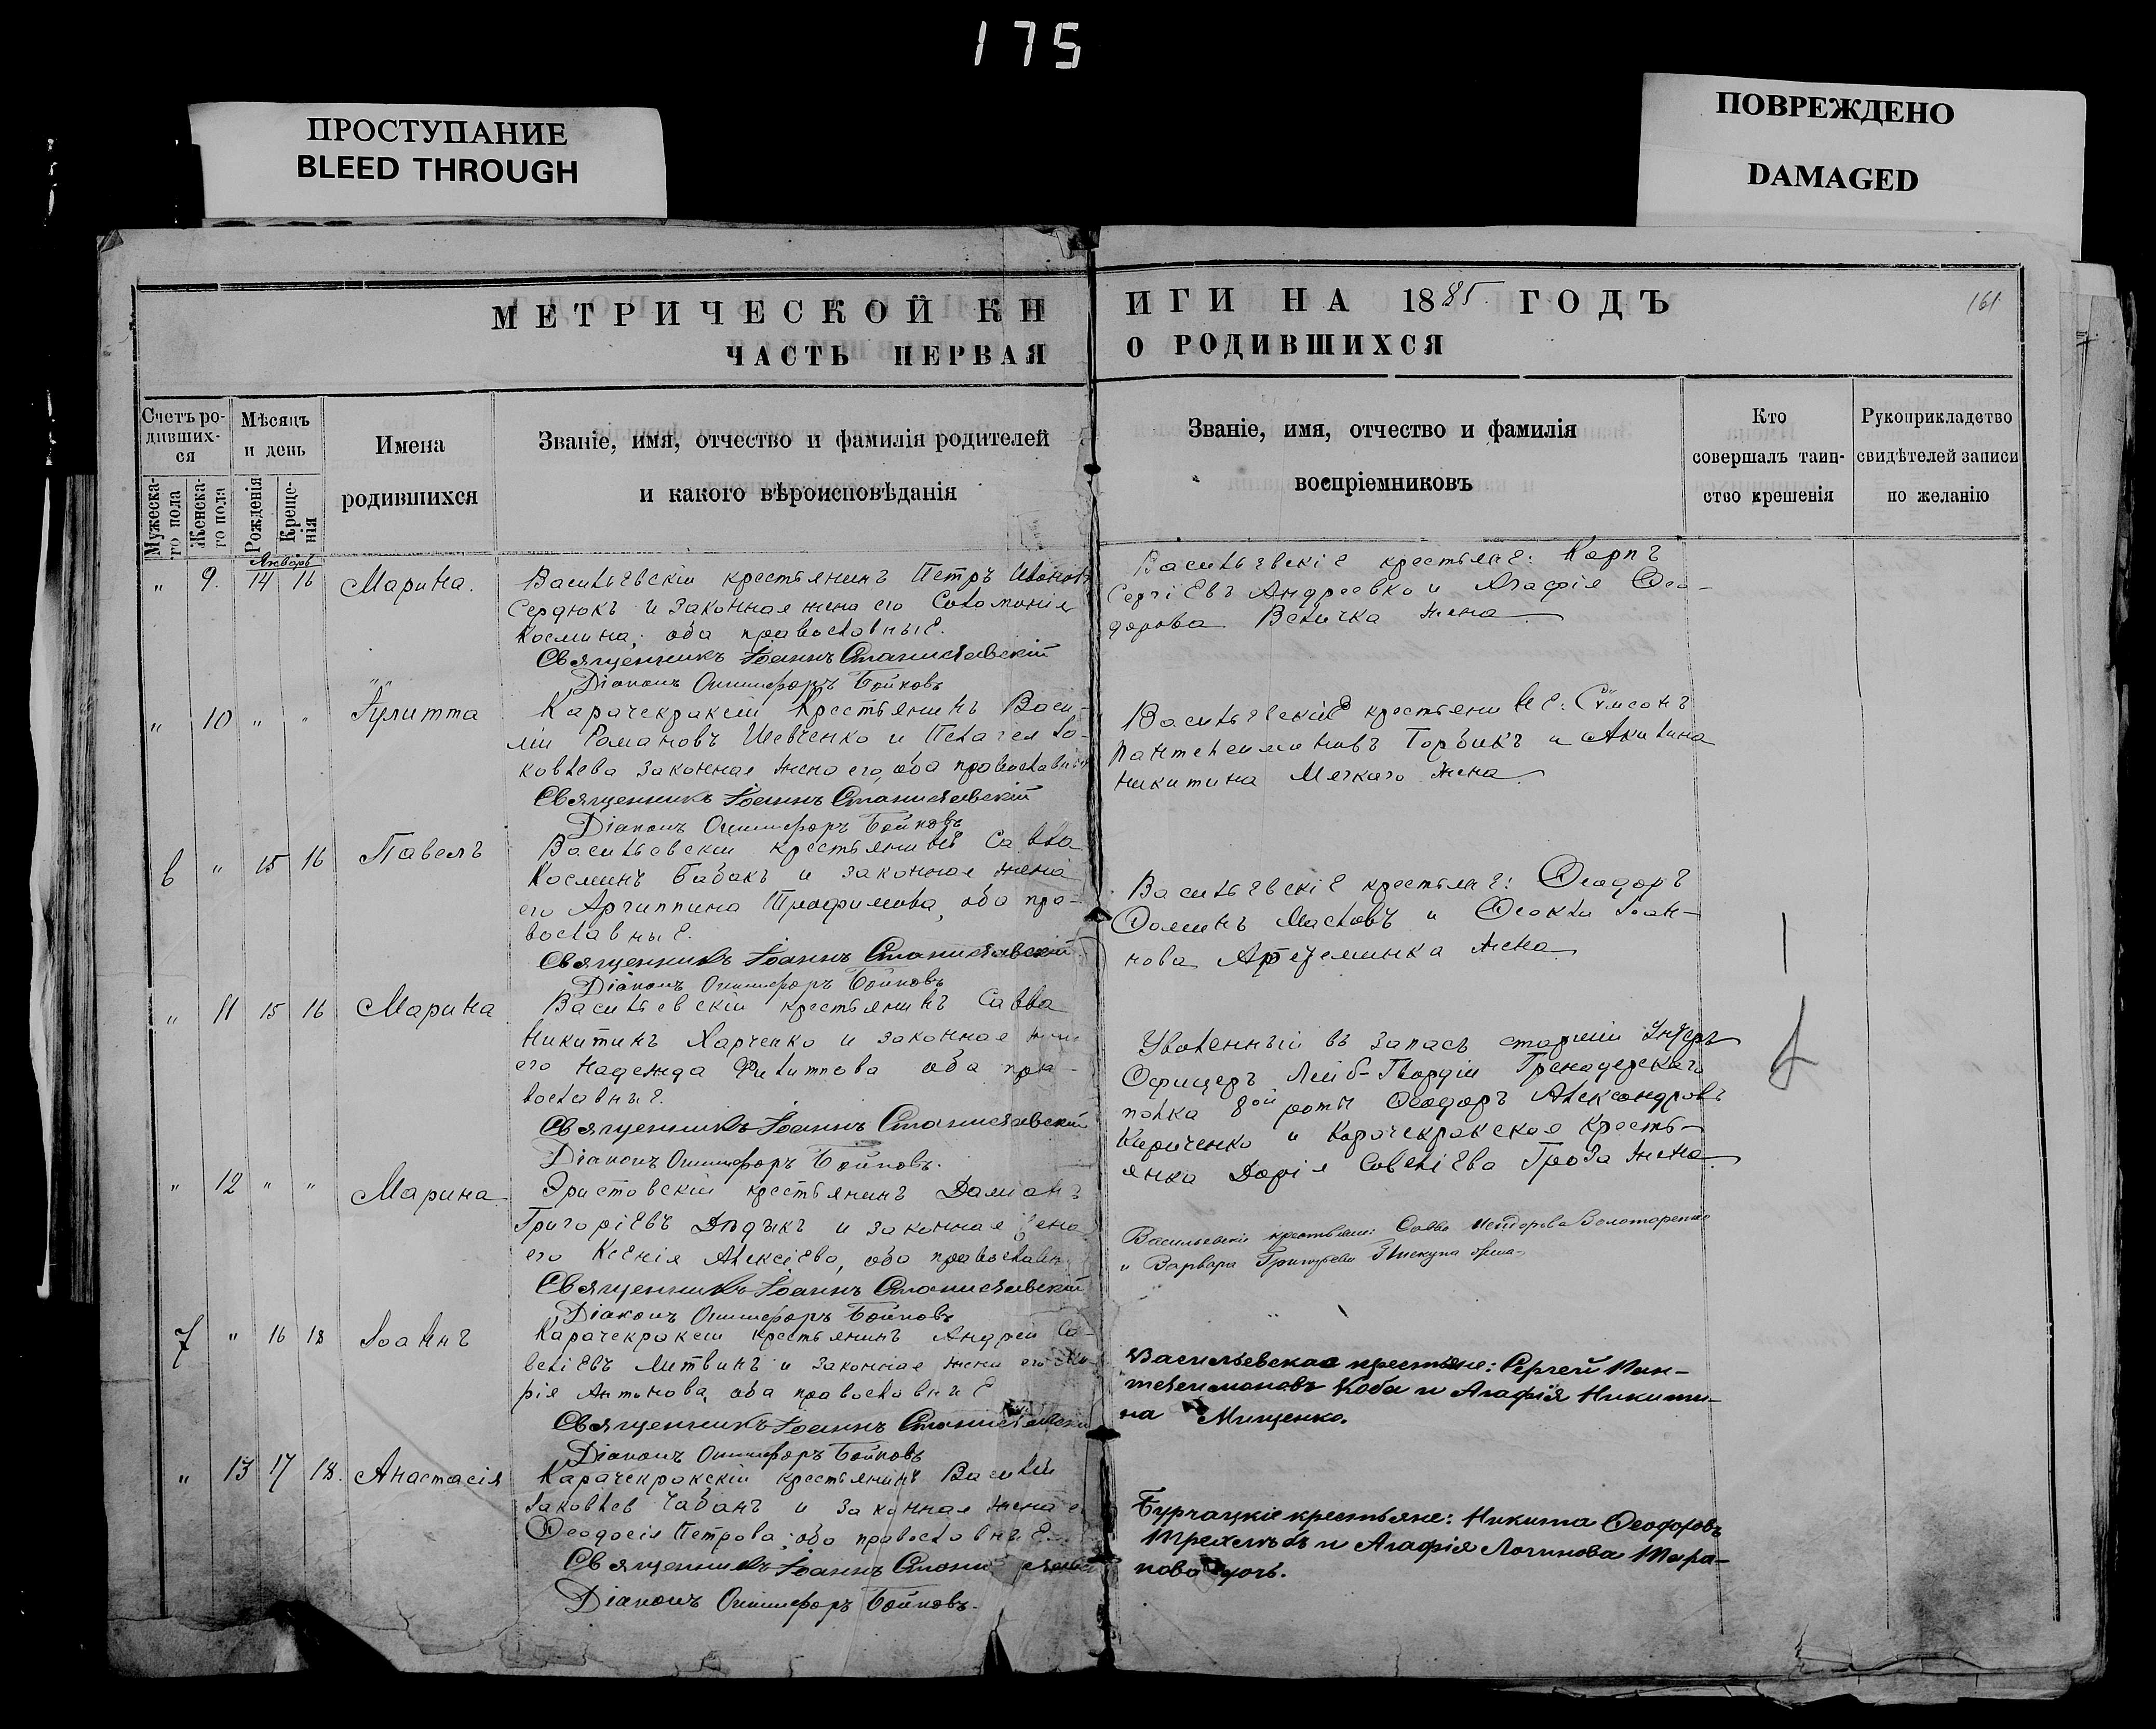 175
ПРОСТУПАНИЕ
BLEED THROUGH
ПОВРЕЖДЕНО
DAMAGED
МЕТРИЧЕСКОЙ КН
ЧАСТЬ ПЕРВАЯ
Счетъ ро-
дивших-
ся
Мужеска-
го пола
Женска-
го пола
Мѣсяцъ
и день
Рожденія
Креще-
нія
Имена
родившихся
Званіе, имя, отчество и фамилія родителей
и какого вѣроисповѣданія
Январь
" 9. 14 16 Марина.
Васильевскій крестьянинъ Петръ Ивановъ
Сердюкъ и законная жена его Соломонія
Космина, оба православные.
Священникъ Іоаннъ Станиславскій
Діаконъ Онисифоръ Бойковъ
" 10 " " Іулитта
Карачекракскій крестьянинъ Васи-
лій Романовъ Шевченко и Пелагея Іа-
ковлева законная жена его, оба православные
Священникъ Іоаннъ Станиславскій
Діаконъ Онисифоръ Бойковъ
6 " 15 16 Павелъ
Васильевскій крестьянинъ Савва
Косминъ Бабакъ и законная жена
его Агриппина Трофимова, оба пра-
вославные.
Священникъ Іоаннъ Станиславскій
Діаконъ Онисифоръ Бойковъ
" 11 15 16 Марина
Васильевскій крестьянинъ Савва
Никитинъ Харченко и законная жена
его Надежда Филиппова оба пра-
вославные.
Священникъ Іоаннъ Станиславскій
Діаконъ Онисифоръ Бойковъ.
" 12 " " Марина
Эристовскій крестьянинъ Даміанъ
Григоріевъ Дѣдыкъ и законная жена
его Ксенія Алексіева, оба православн
Священникъ Іоаннъ Станиславскій
Діаконъ Онисифоръ Бойковъ
7 " 16 18 Іоаннъ
Карачекракскій крестьянинъ Андрей Са-
веліевъ Литвинъ и законная жена его Ма-
рія Антонова, оба православные
Священникъ Іоаннъ Станиславскій
Діаконъ Онисифоръ Бойковъ
" 13 17 18. Анастасія
Карачекракскій крестьянинъ Василій
Іаковлев Чабанъ и законная жена е
Ѳеодосія Петрова, оба православные.
Священникъ Іоаннъ Станиславскій
Діаконъ Онисифоръ Бойковъ.
ИГИ НА 1885. ГОДЪ
О РОДИВШИХСЯ
161
Званіе, имя, отчество и фамилія
воспріемниковъ
Кто
совершалъ таин-
ство крещенія
Рукоприкладство
свидѣтелей записи
по желанію
Васильевскіе крестьяне: Карпъ
Сергіевъ Андреевко и Агафія Ѳео-
дорова Величка жена
Васильевскіе крестьяне: Сѵмеонъ
Пантелеимоновъ Горбикъ и Акилина
Никитина Мягкаго жена
Васильевскіе крестьяне: Ѳеодоръ
Ѳоминъ Масловъ и Ѳеокла Іоан-
нова жена
Уволенный въ запасъ старшій Унтеръ
Офицеръ Лейб-Гвардіи Гренадерскаго
полка 8ой роты Ѳеодоръ Александровъ
Кириченко и Карачекракская кресть-
янка Дарія Савеліева Гроза жена
Васильевскіе крестьяне: Савва Золотаренко
и Варвара Григорьева Пискуна жена
Васильевская крестьяне: Сергей Пан-
телеимоновъ Коба и Агафія Никити-
на Мищенко.
Бурчацкіе крестьяне: Никита Ѳеодоровъ
и Агафія Логинова Тара-
нова дочь.